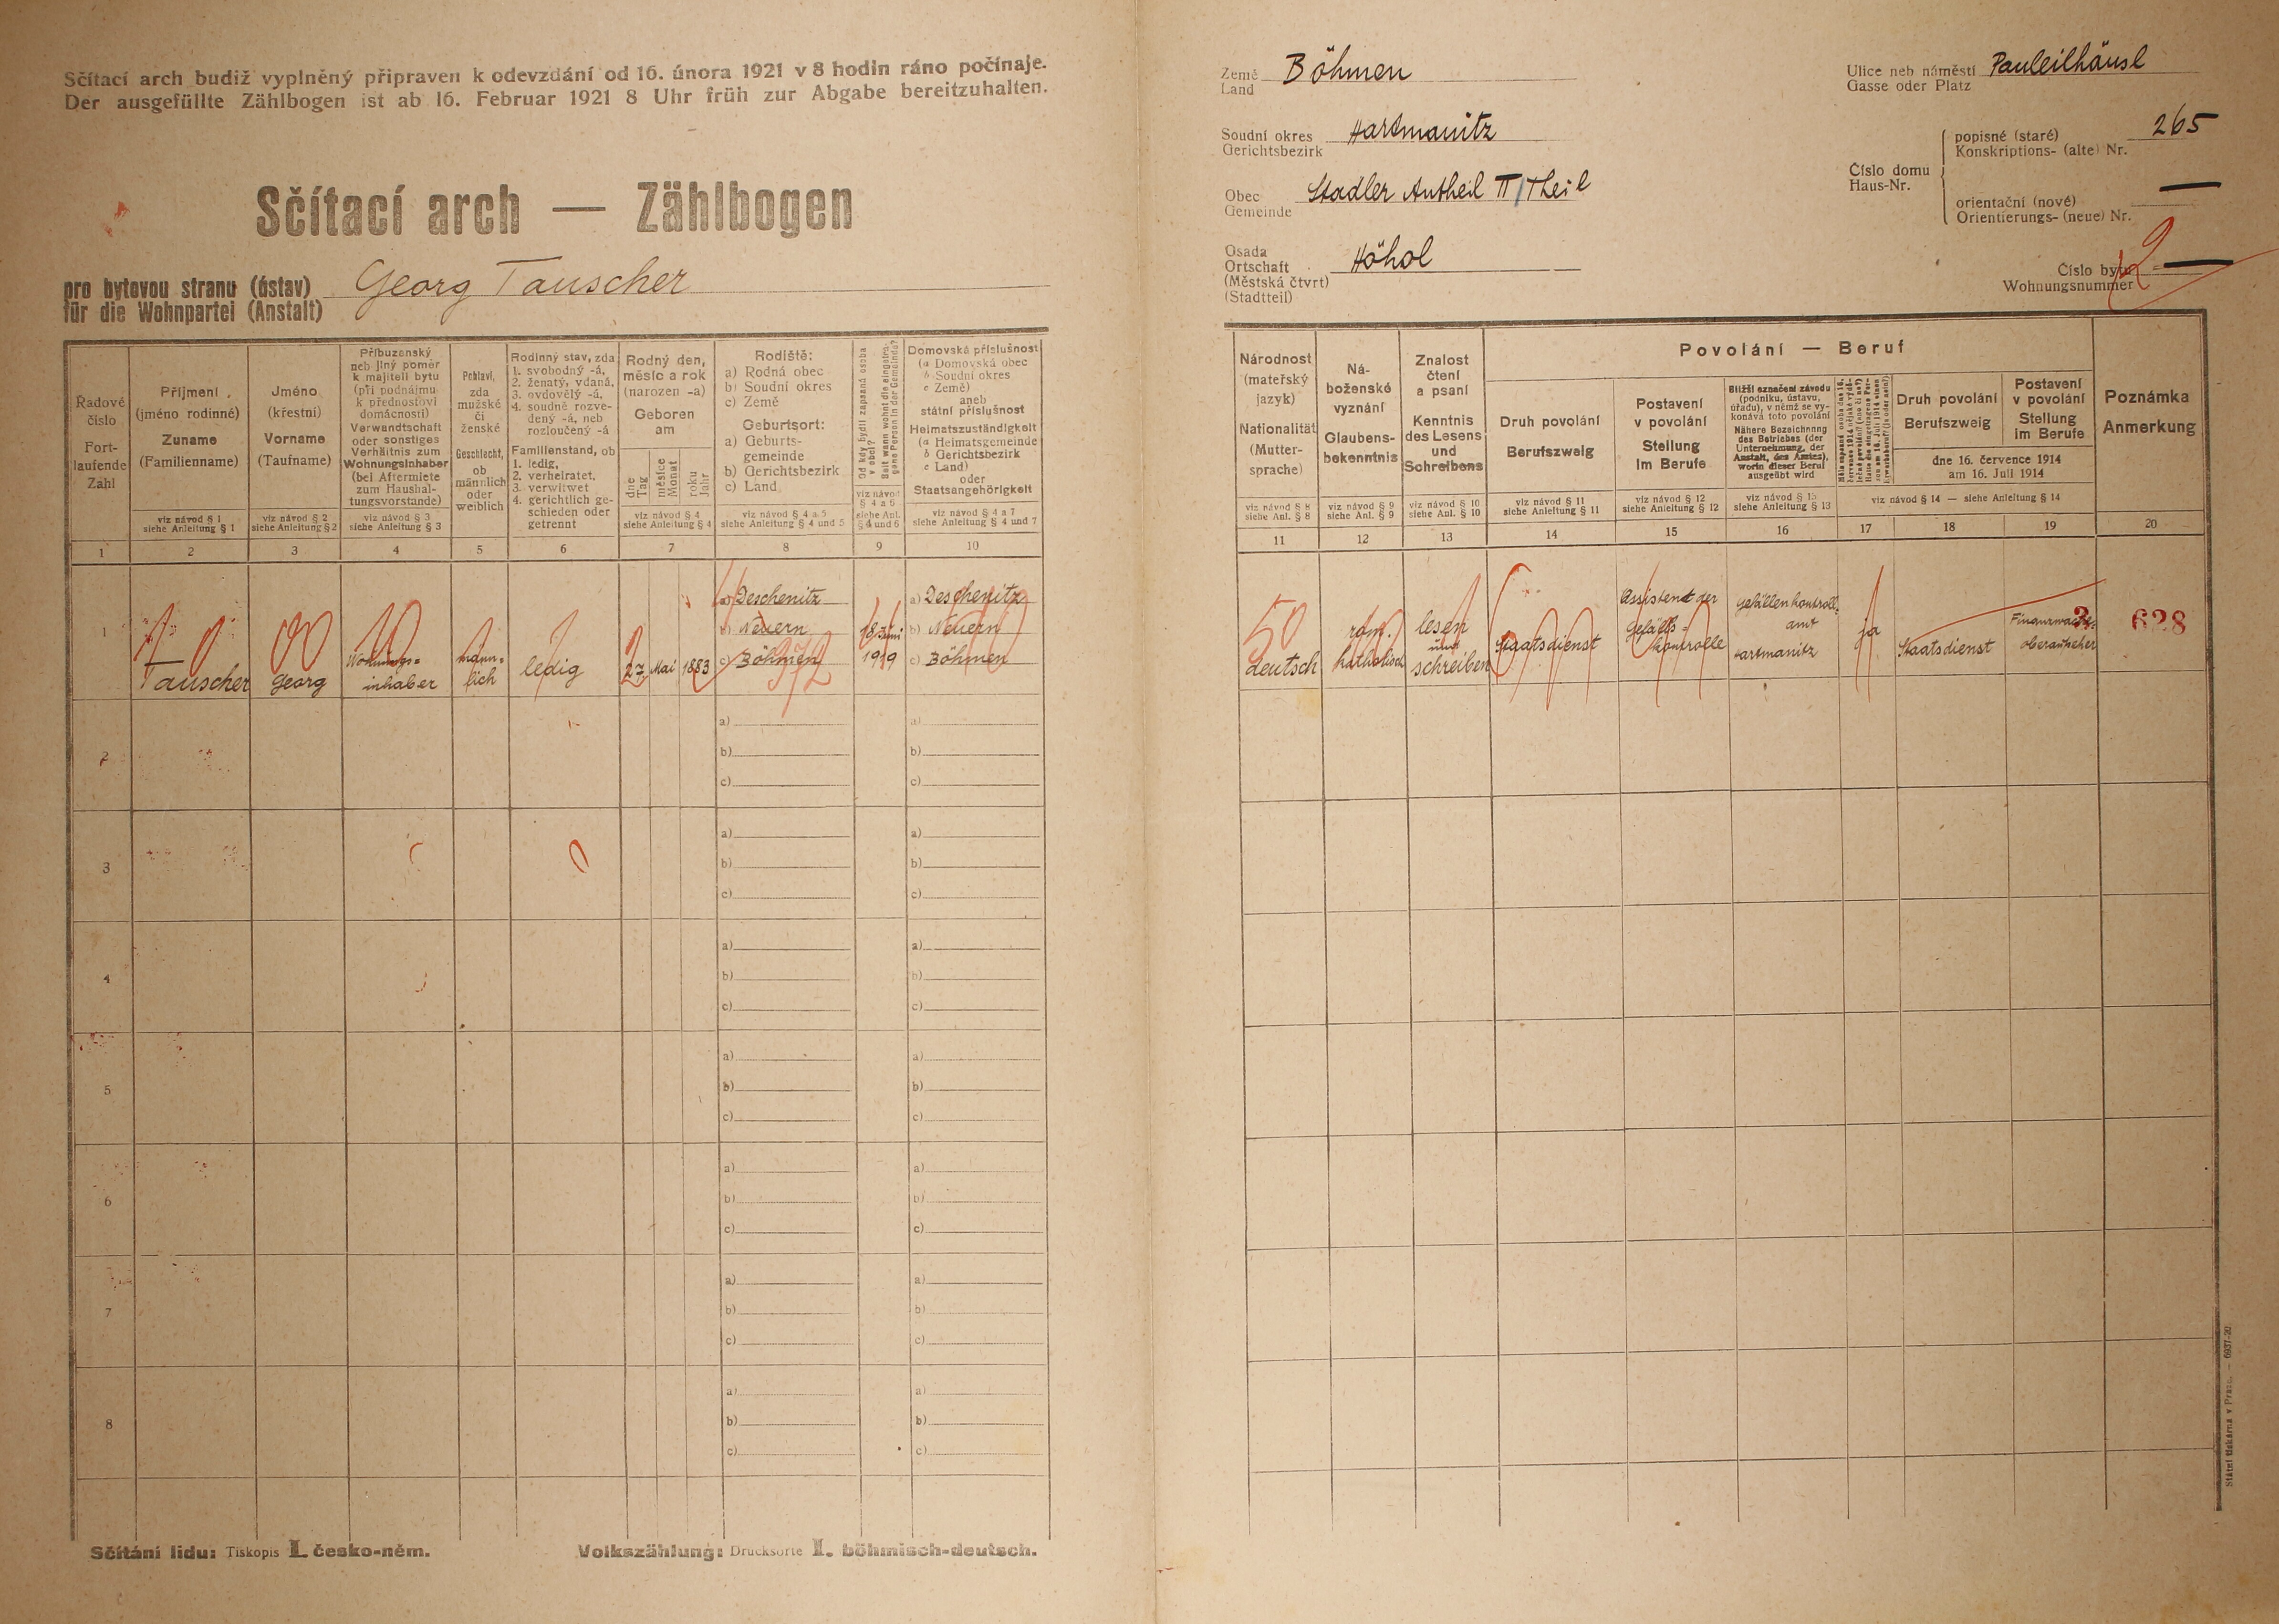 Sčítací arch budiž vyplněný připraven k odevzdání od 16. února 1921 v 8 hodin ráno počínaje.
Der ausgefüllte Zählbogen ist ab 16. Februar 1921 8 Uhr früh zur Abgabe bereitzuhalten.
Sčítací arch — Zählbogen
pro bytovou stranu (ústav)
für die Wohnpartei (Anstalt)
Georg Tauscher
Země
Land
Böhmen
Soudní okres
Gerichtsbezirk
Hartmanitz
Obec
Gemeinde
Stadler Antheil II/Theil
Osada
Ortschaft
(Městská čtvrt)
(Stadtteil)
Höhol
Ulice neb náměstí
Gasse oder Platz
Pauleilhäusl
Číslo domu
Haus-Nr.
popisné (staré)
Konskriptions- (alte) Nr.
265
orientační (nové)
Orientierungs- (neue) Nr.
—
Číslo bytu
Wohnungsnummer
2
Řadové
číslo
Fort-
laufende
Zahl
1
Příjmení
(jméno rodinné)
Zuname
(Familienname)
viz návod § 1
siehe Anleitung § 1
2
Jméno
(křestní)
Vorname
(Taufname)
viz návod § 2
siehe Anleitung § 2
3
Příbuzenský
neb jiný poměr
k majiteli bytu
(při podnájmu
k přednostovi
domácnosti)
Verwandtschaft
oder sonstiges
Verhältnis zum
Wohnungsinhaber
(bei Aftermiete
zum Haushal-
tungsvorstande)
viz návod § 3
siehe Anleitung § 3
4
Pohlaví,
zda
mužské
či
ženské
Geschlecht,
ob
männlich
oder
weiblich
5
Rodinný stav, zda
1. svobodný -á,
2. ženatý, vdaná,
3. ovdovělý -á,
4. soudně rozve-
dený -á, neb
rozloučený -á
Familienstand, ob
1. ledig,
2. verheiratet,
3. verwitwet
4. gerichtlich ge-
schieden oder
getrennt
6
Rodný den,
měsíc a rok
(narozen -a)
Geboren
am
dne
Tag
měsíce
Monat
roku
Jahr
viz návod § 4
siehe Anleitung § 4
7
Rodiště:
a) Rodná obec
b) Soudní okres
c) Země
Geburtsort:
a) Geburts-
gemeinde
b) Gerichtsbezirk
c) Land
viz návod § 4 a 5
siehe Anleitung § 4 und 5
8
Od kdy bydlí zapsaná osoba
v obci?
Seit wann wohnt die eingetra-
gene Person in der Gemeinde?
viz návod
§ 4 a 6
siehe Anl.
§ 4 und 6
9
Domovská příslušnost
(a Domovská obec
b Soudní okres
c Země)
aneb
státní příslušnost
Heimatszuständigkeit
(a Heimatsgemeinde
b Gerichtsbezirk
c Land)
oder
Staatsangehörigkeit
viz návod § 4 a 7
siehe Anleitung § 4 und 7
10
Národnost
(mateřský
jazyk)
Nationalität
(Mutter-
sprache)
viz návod § 8
siehe Anl. § 8
11
Ná-
boženské
vyznání
Glaubens-
bekenntnis
viz návod § 9
siehe Anl. § 9
12
Znalost
čtení
a psaní
Kenntnis
des Lesens
und
Schreibens
viz návod § 10
siehe Anl. § 10
13
Povolání — Beruf
Druh povolání
Berufszweig
viz návod § 11
siehe Anleitung § 11
14
Postavení
v povolání
Stellung
im Berufe
viz návod § 12
siehe Anleitung § 12
15
Bližší označení závodu
(podniku, ústavu,
úřadu), v němž se vy-
konává toto povolání
Nähere Bezeichnung
des Betriebes (der
Unternehmung, der
Anstalt, des Amtes),
worin dieser Beruf
ausgeübt wird
viz návod § 13
siehe Anleitung § 13
16
17
Druh povolání
Berufszweig
Postavení
v povolání
Stellung
im Berufe
dne 16. července 1914
am 16. Juli 1914
viz návod § 14 — siehe Anleitung § 14
18
19
Poznámka
Anmerkung
20
1
Tauscher
Georg
Wohnungs-
inhaber
männ-
lich
ledig
27. Mai 1883
a) Deschenitz
b) Neuern
c) Böhmen
972
18 Juni
1919
a) Deschenitz
b) Neuern
c) Böhmen
50
deutsch
röm.
katholisch
lesen
und
schreiben
Staatsdienst
Assistent der
Gefälls-
kontrolle
Gefällenkontroll-
amt
Hartmanitz
ja
Staatsdienst
Finanzwach-
oberaufseher
628
2
a)
b)
c)
a)
b)
c)
3
a)
b)
c)
a)
b)
c)
4
a)
b)
c)
a)
b)
c)
5
a)
b)
c)
a)
b)
c)
6
a)
b)
c)
a)
b)
c)
7
a)
b)
c)
a)
b)
c)
8
a)
b)
c)
a)
b)
c)
Sčítání lidu: Tiskopis I. česko-něm.
Volkszählung: Drucksorte I. böhmisch-deutsch.
Státní tiskárna v Praze. — 6937-20